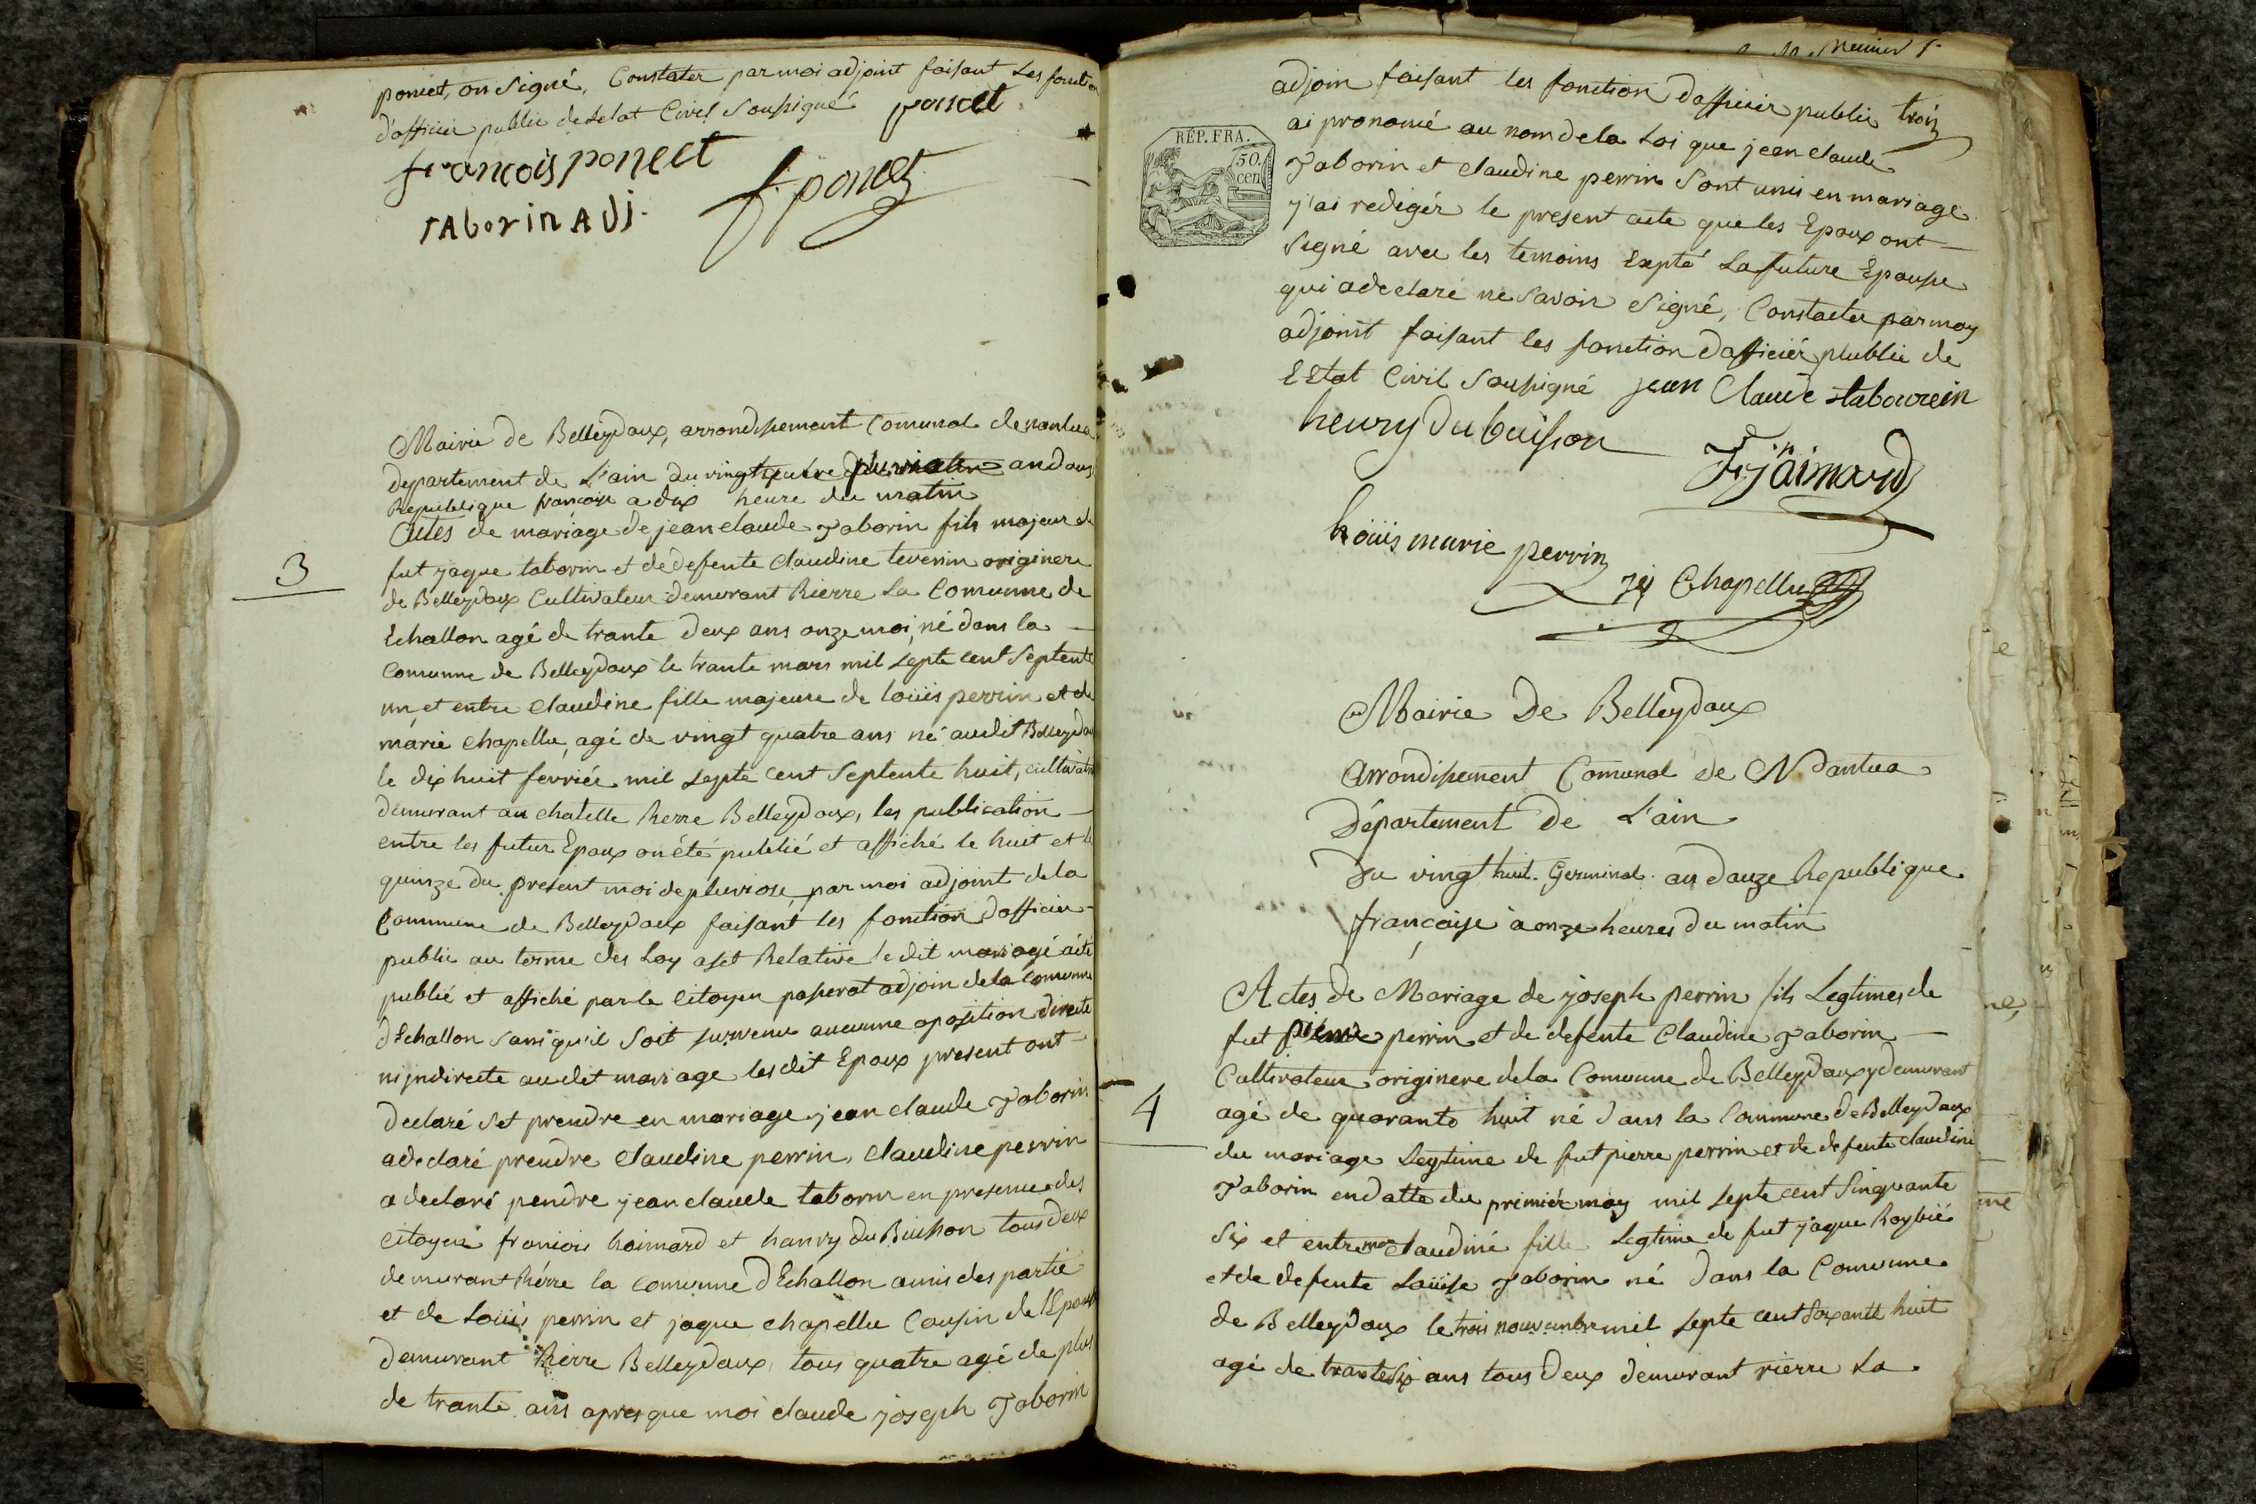 poncet, on Signé, Constater par moi adjoint faisant Les fonction
d'officier public de letat Civil Sousigné poncet
francois poncet
f poncet
TAborin ADj.
Mairie de Belleydoux, arrondissement Comunal de nantua
departement de L'ain du vingt quatre pluviose an douz
Republique francoise a dix heure du matin
3
Actes de mariage de jean claude Taborin fils majeur de
fut jaque taborin et de defente Claudine tevenin originere
de Belleydoux Cultivateur demurant Rierre La Comunne de
Echallon agé de trante deux ans onze moi, né dans la
Comunne de Belleydoux le trante mars mil Septe cent Septente
un et entre Claudine fille majeure de louïs perrin et de
marie Chapellu, agé de vingt quatre ans né audit Belleydou
le dix huit fevrier mil Septe cent Septente huit, cultivatr
demurant au chatelle Rierre Belleydoux, les publication
entre les futur Epoux on été publié et affiché le huit et le
quinze du present moi de pluviose, par moi adjoint de la
Commune de Belleydoux faisant les fonction d'officier
public au terme des Loy aset Relative le dit mariage a été
publié et affiché par le Citoyen passerat adjoin de la Comunne
d'Echallon sans qu'il Soit survenu aucunne oposition directe
ni jndirecte au dit mariage lesdit Epoux present ont
declaré set prendre en mariage, jean claude Taborin
a declaré prendre Claudine perrin, Claudine perrin
a declaré pendre jean claude taborin en presence des
citoyen francois haimard et hanry du Buisson tous deux
demurant Rierre la comunne d'Echallon amis des partie
et de Louïs perrin et jaque chapellu Cousin de l'Epouse
demurant Rierre Belleydoux, tous quatre agé de plus
de trante ans apres que moi claude joseph Taborin
RÉP. FRA.
50.
cen
adjoin faisant les fonction d'afficier public trois
ai pronomcé au nom de la Loi que jean claude
Taborin et Claudine perrin Sont unis en mariage
j'ai rediger le present acte que les Epoux ont
Signé avec les temoins Exepté La future Epouse
qui a declaré ne savoir Signé, Constater par moy
adjoint faisant les fonction d'afficier plublic de
L'Etat Civil Sousigné jean Claude tabourein
henry du buisson
Fs jaimard
Louïs marie perrin
jq Chapellu
Mairie De Belleydoux
Arrondissement Comunal De Nantua
Département De L'ain
Du vingt huit Germinal an douze Republique
française à onze heures du matin
4
Actes de Mariage de joseph perrin fils Legtimes de
fut pierre perrin et de defente Claudine Taborin
Cultivateur originere de la Comunne de Belleydoux y demurant
agé de quarante huit né dans la Commune de Belleydoux
du mariage Legtime de fut pierre perrin et de defente claudine
Taborin en datte du primier may mil Septe cent Sinquante
Six et entre claudine fille Legtime de fut jaque Roybié
et de defente Louïse Taborin né dans la Comunne
de Belleydoux le trois nouvanbre mil Septe cent Soixante huit
agé de trante six ans tous deux demurant rierre La